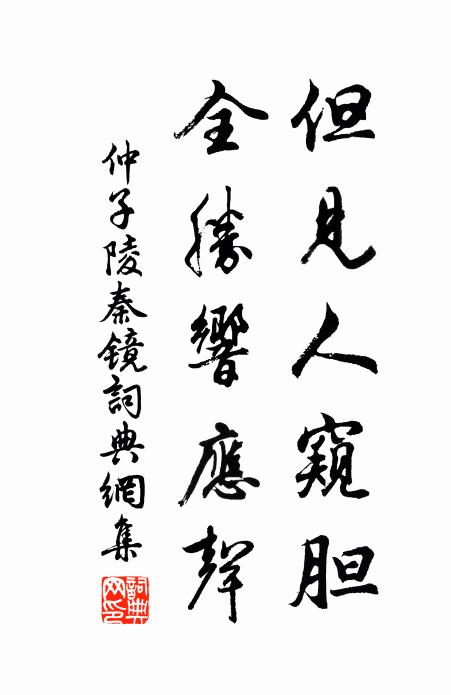 但見人窺胆
全勝響應聲
仲子陵秦鏡詞典網集
詞典網印